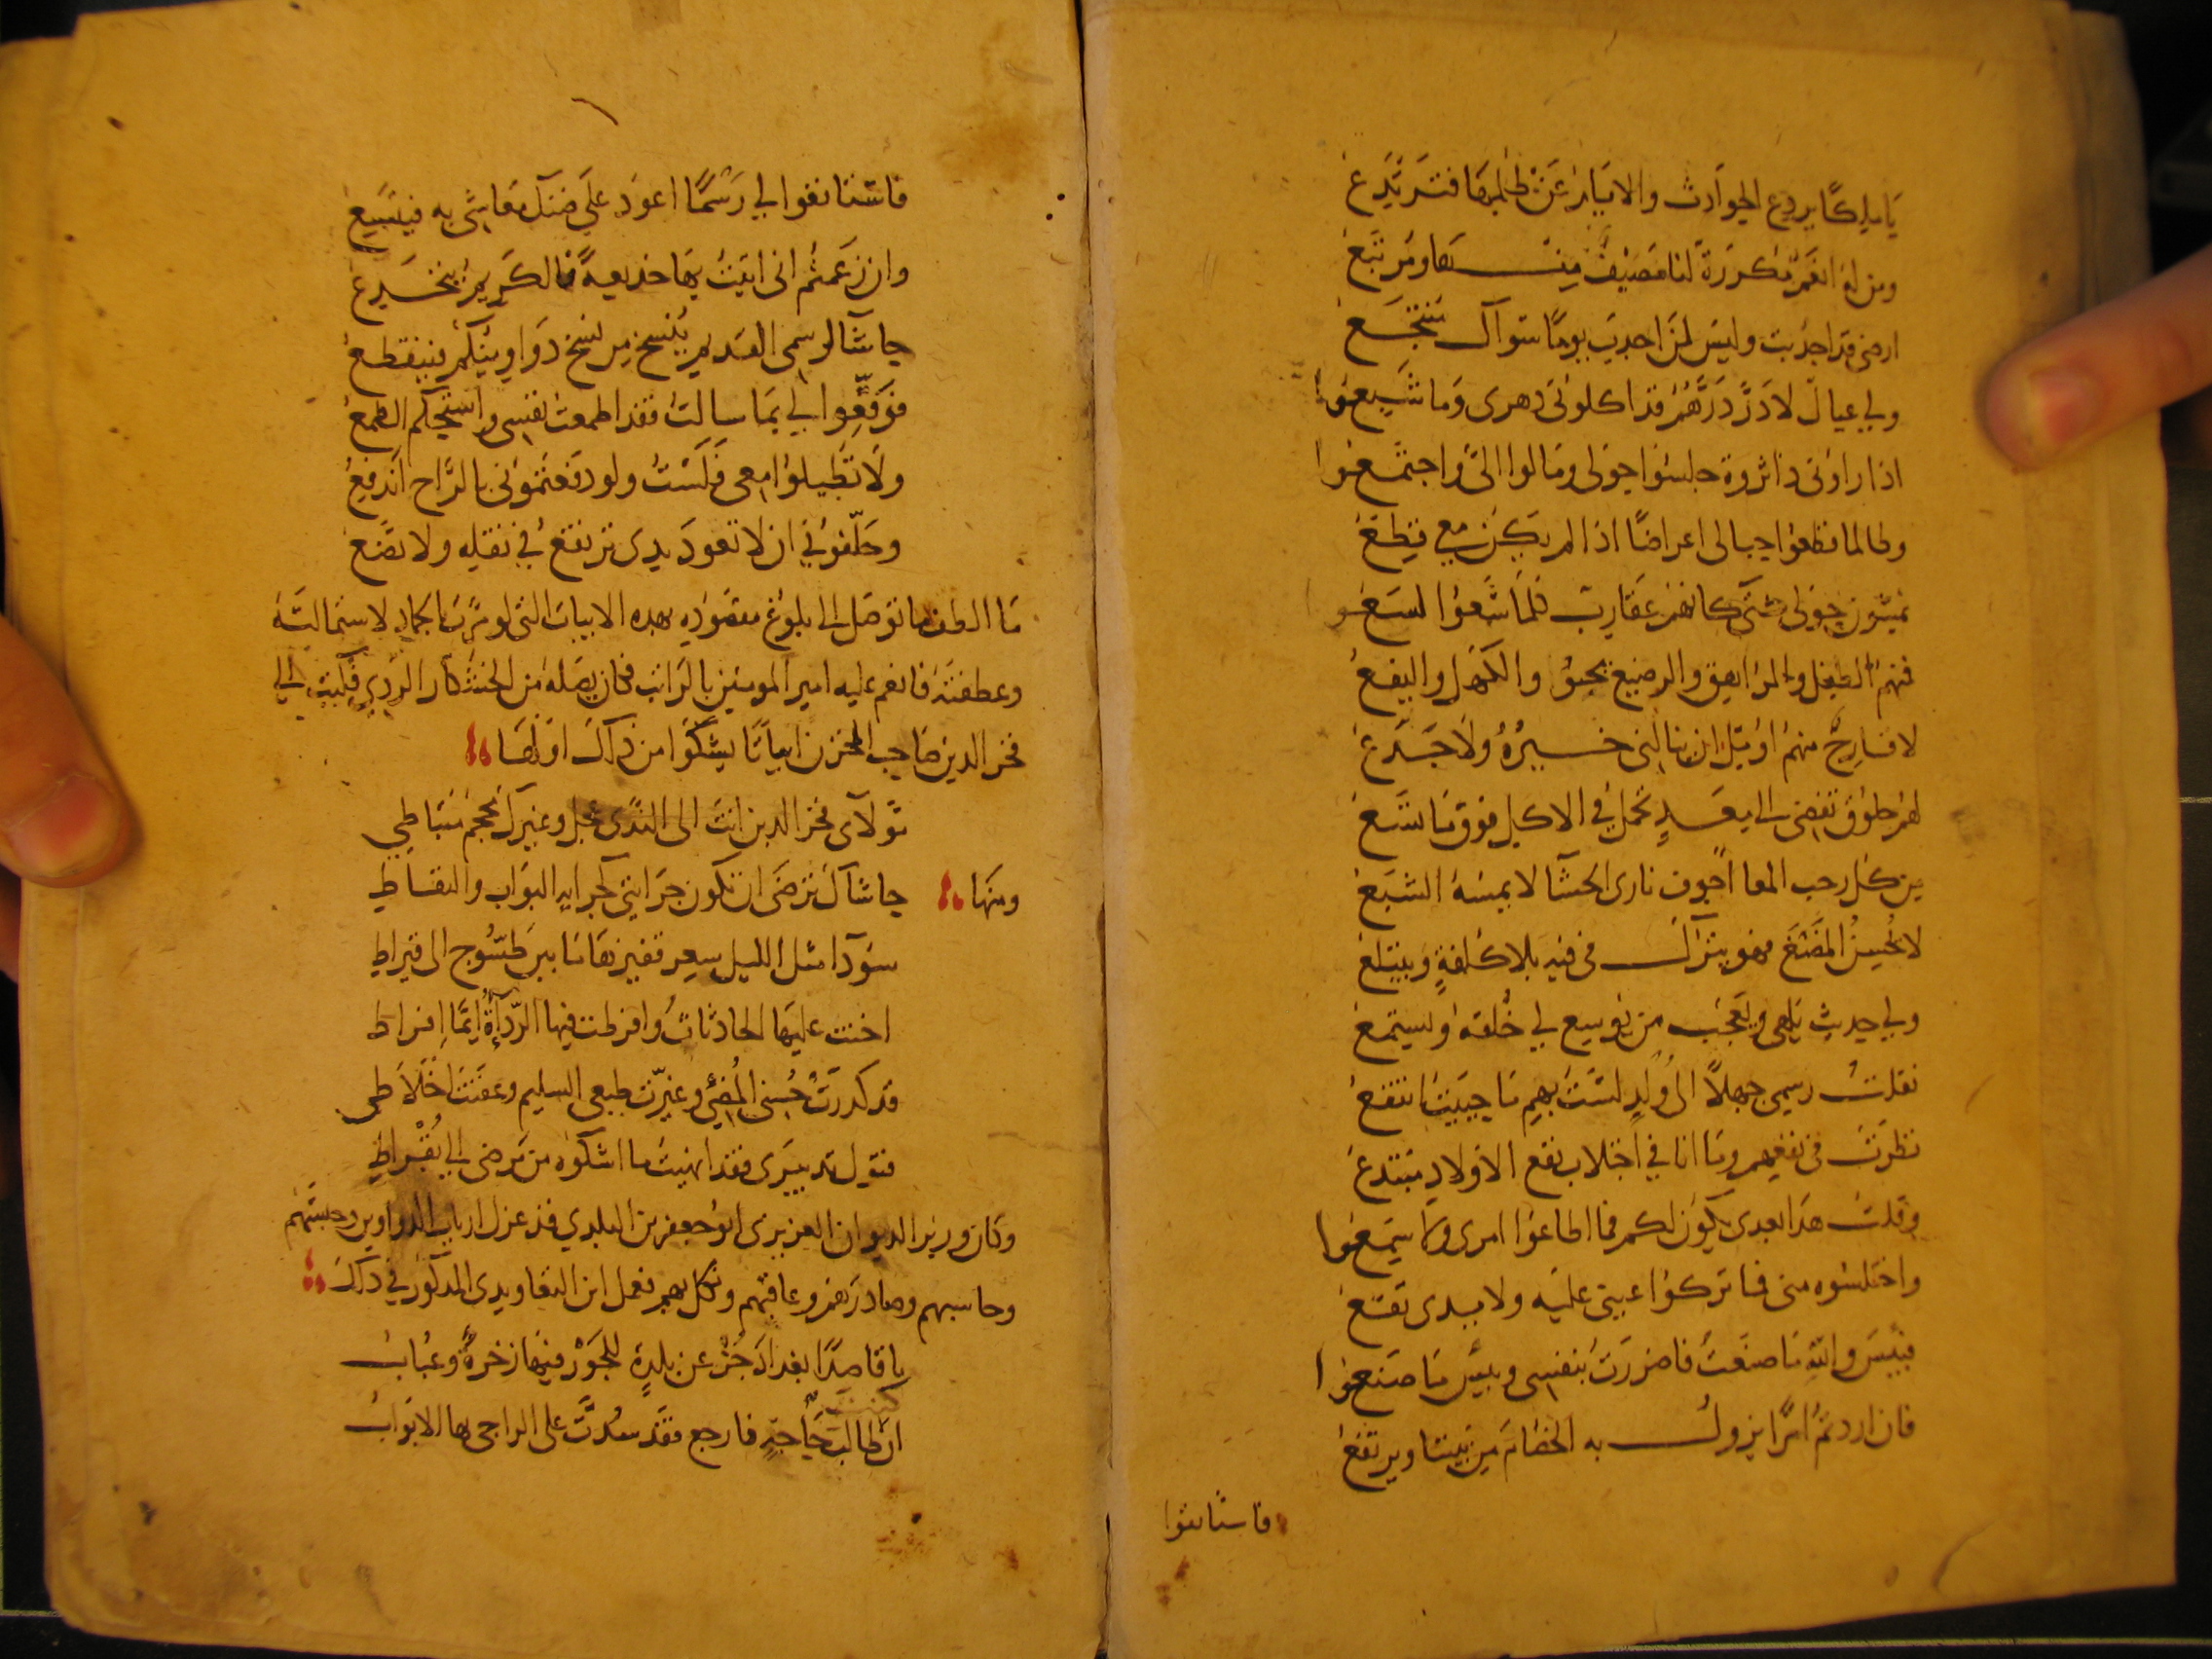 يا ملكا يردع الحوادث والايام عن ظلمها فترتدع
ومن له انعم مكررة لنا مصيف منها ومرتبع
ارضى قد اجدبت وليس لمن اجدب يوما سواك منتجع
ولى عيال لا در درهم قد اكلونى دهرى وما شبعوا
اذا راونى ذا ثروة جلسوا حولى ومالوا الى واجتمعوا
وطالما قطعوا حبالى اعراضا اذا لم يكن معى قطع
يمشون حولى شتى كانهم عقارب كلما سعوا لسعوا
فمنهم الطفل والمراهق والرضيع يحبو والكهل واليفع
لا قارح منهم اومل ان ينالنى خيره ولا جذع
لهم حلوق تفضى الى معد تحمل فى الاكل فوق ما تسع
من كل رحب المعا اجوف نارى الحشا لا يمسه الشبع
لا يحسن المضغ فهو يترك فى فيه بلا كلفة ويبتلع
ولى حديث يلهى ويعجب من يوسع لى خلقه ويستمع
نقلت رسمى جهلا الى ولد لست بهم ما حييت انتفع
نظرت فى نفعهم وما انا فى اجتلاب نفع الاولاد مبتدع
وقلت هذا بعدى يكون لكم فما اطاعوا امرى ولا سمعوا
واختلسوه منى فما تركوا عينى عليه ولا يدى تقع
فبئس والله ما صنعت فاضررت بنفسى وبئس ما صنعوا
فان اردتم امرا يزول به الخصام من بيننا ويرتفع
فاستانفوا
فاستانفوا لى رسما اعود على ضنك معاشى به فيتسع
وان زعمتم انى اتيت بها خديعة فالكريم ينخدع
حاشا لرسمى القديم ينسخ من نسخ دواوينكم فينقطع
فوقعوا لى بما سالت فقد اطمعت نفسى واستحكم الطمع
ولا تطيلوا معى فلست ولو دفعتمونى بالراح اندفع
وحلفونى ان لا تعود يدى ترتفع فى نقله ولا تضع
ما الطف ما توصل الى بلوغ مقصوده بهذه الابيات التى لو مرت بالجماد لاستمالته
وعطفته فانعم عليه امير المومنين بالراتب فكان يصله من الخشكار الردى فكتب الى
فخر الدين صاحب المخزن ابياتا يشكوا من ذلك اولها
مولاى فخر الدين انت الى الندى عجل وغيرك محجم متباطى
ومنها حاشاك ترضى ان تكون جرايتى كجراية البواب والنفاط
سودا مثل الليل سعر قفيزها ما بين طسوج الى قيراط
اخنت عليها الحادثات وافرطت فيها الرداءة ايما افراط
قد كدرت حسى المضئ وغيرت طبعى السليم وعفنت اخلاطى
فتول تدبيرى فقد انهيت ما اشكوه من مرضى الى بقراط
وكان وزير الديوان العزيزى ابو جعفر بن البلدي قد عزل ارباب الدواوين وحبسهم
وحاسبهم وصادرهم وعاقبهم ونكل بهم فعمل ابن التعاويذى المذكور فى ذلك
يا قاصدا بغداد جز عن بلدة للجور فيها زخرة وعباب
ان كنت طالب حاجة فارجع فقد سدت على الراجى بها الابواب